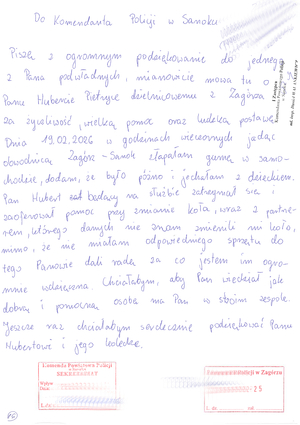 Do Komendanta Policji w Sanoku
Piszę z ogromnym podziękowanie do jednego
z Pana podwładnych, mianowicie mowa tu o
Panu Hubercie Pietryce dzielnicowemu z Zagórza
za życzliwość, wielką pomoc oraz ludzką postawę.
Dnia 19.02.2026 w godzinach wieczornych jadąc
obwodnicą Zagórz-Sanok złapałam gumę w samo-
chodzie, dodam, że było późno i jechałam z dzieckiem.
Pan Hubert zat będący na służbie zatrzymał się i
zaoferował pomoc przy zmianie koła, wraz z partne-
rem, którego danych nie znam zmienili mi koło,
mimo, że nie miałam odpowiedniego sprzętu do
tego Panowie dali radę za co jestem im ogro-
mnie wdzięczna. Chciałabym, aby Pan wiedział jak
dobrą i pomocną osobę ma Pan w swoim zespole.
Jeszcze raz chciałabym serdecznie podziękować Panu
Hubertowi i jego koledze.
Komenda Powiatowa Policji
SEKRETARIAT
Policji w Zagórzu